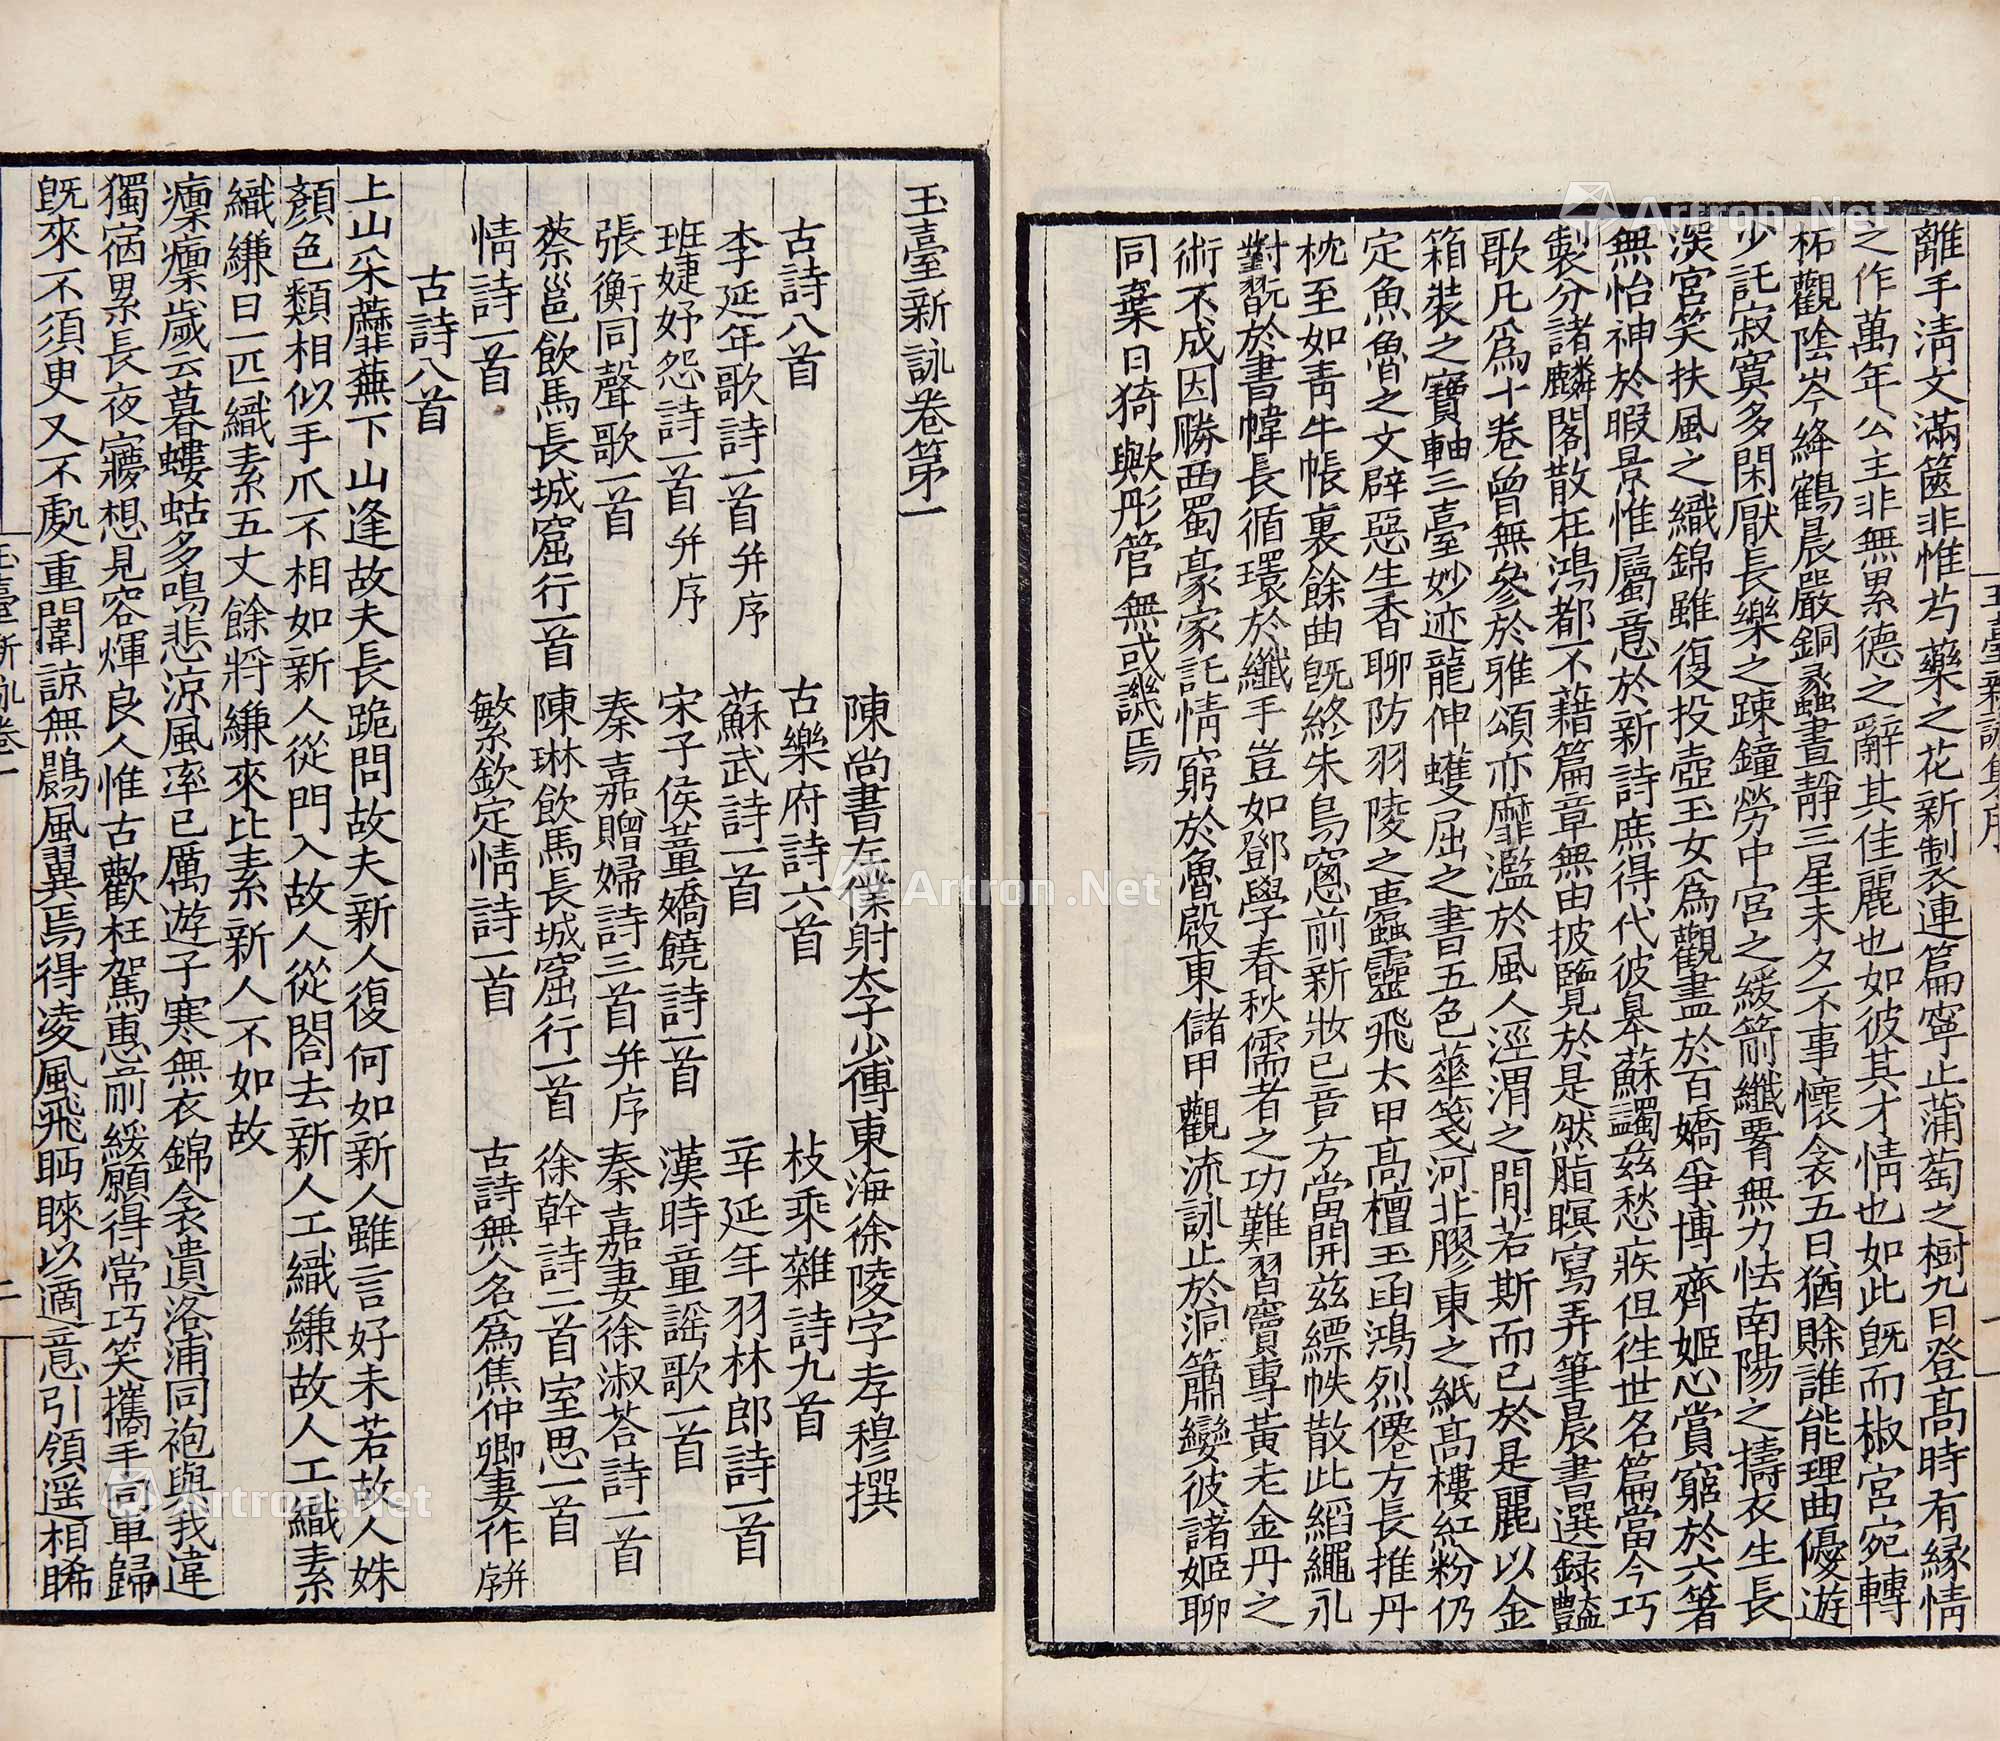 離手清文滿篋非惟芍藥之花新製連篇寧止蒲萄之樹九日登高時有緣情
之作萬年公主非無累德之辭其佳麗也如彼其才情也如此旣而椒宮宛轉
柘觀陰岑絳鶴晨嚴銅蠡晝靜三星未夕不事懷衾五日猶賒誰能理曲優遊
少託寂寞多閑厭長樂之踈鐘勞中宮之緩箭纖䙴無力怯南陽之擣衣生長
深宮笑扶風之織錦雖復投壺玉女爲觀盡於百嬌爭博齊姬心賞窮於六箸
無怡神於暇景惟屬意於新詩庶得代彼臯蘇蠲兹愁疾但徃世名篇當今巧
製分諸麟閣散在鴻都不藉篇章無由披覽於是然脂暝寫弄筆晨書選録豔
歌凡爲十卷曾無參於雅頌亦靡濫於風人涇渭之間若斯而已於是麗以金
箱裝之寶軸三臺妙迹龍伸蠖屈之書五色華箋河北膠東之紙高樓紅粉仍
定魚魯之文辟惡生香聊防羽陵之蠹靈飛太甲高檀玉函鴻烈僊方長推丹
枕至如靑牛帳裏餘曲旣終朱鳥窻前新妝已竟方當開兹縹帙散此縚繩永
對翫於書幃長循環於纖手豈如鄧學春秋儒者之功難習竇專黃老金丹之
術不成因勝西蜀豪家託情窮於魯殿東儲甲觀流詠止於洞簫孌彼諸姬聊
同棄日猗歟彤管無或譏焉
玉臺新詠集序
一
玉臺新詠卷第一
陳尚書左僕射太子少傅東海徐陵字孝穆撰
古詩八首 古樂府詩六首 枝乘雜詩九首
李延年歌詩一首并序 蘇武詩一首 辛延年羽林郎詩一首
班婕妤怨詩一首并序 宋子侯董嬌饒詩一首 漢時童謠歌一首
張衡同聲歌一首 秦嘉贈婦詩三首并序 秦嘉妻徐淑荅詩一首
蔡邕飲馬長城窟行一首 陳琳飲馬長城窟行一首 徐幹詩二首室思一首
情詩一首 繁欽定情詩一首 古詩無人名爲焦仲卿妻作并序
古詩八首
上山采蘼蕪下山逢故夫長跪問故夫新人復何如新人雖言好未若故人姝
顏色類相似手爪不相如新人從門入故人從閤去新人工織縑故人工織素
織縑日一匹織素五丈餘將縑來比素新人不如故
凜凜歲云暮螻蛄多鳴悲涼風率已厲遊子寒無衣錦衾遺洛浦同袍與我違
獨宿累長夜寢想見容煇良人惟古歡枉駕惠前緩願得常巧笑攜手同車歸
旣來不須臾又不處重闈諒無鷐風翼焉得凌風飛眄睞以適意引領遥相睎
玉臺新詠卷一
二
Artron.Net
Artron.Net
Artron.Net